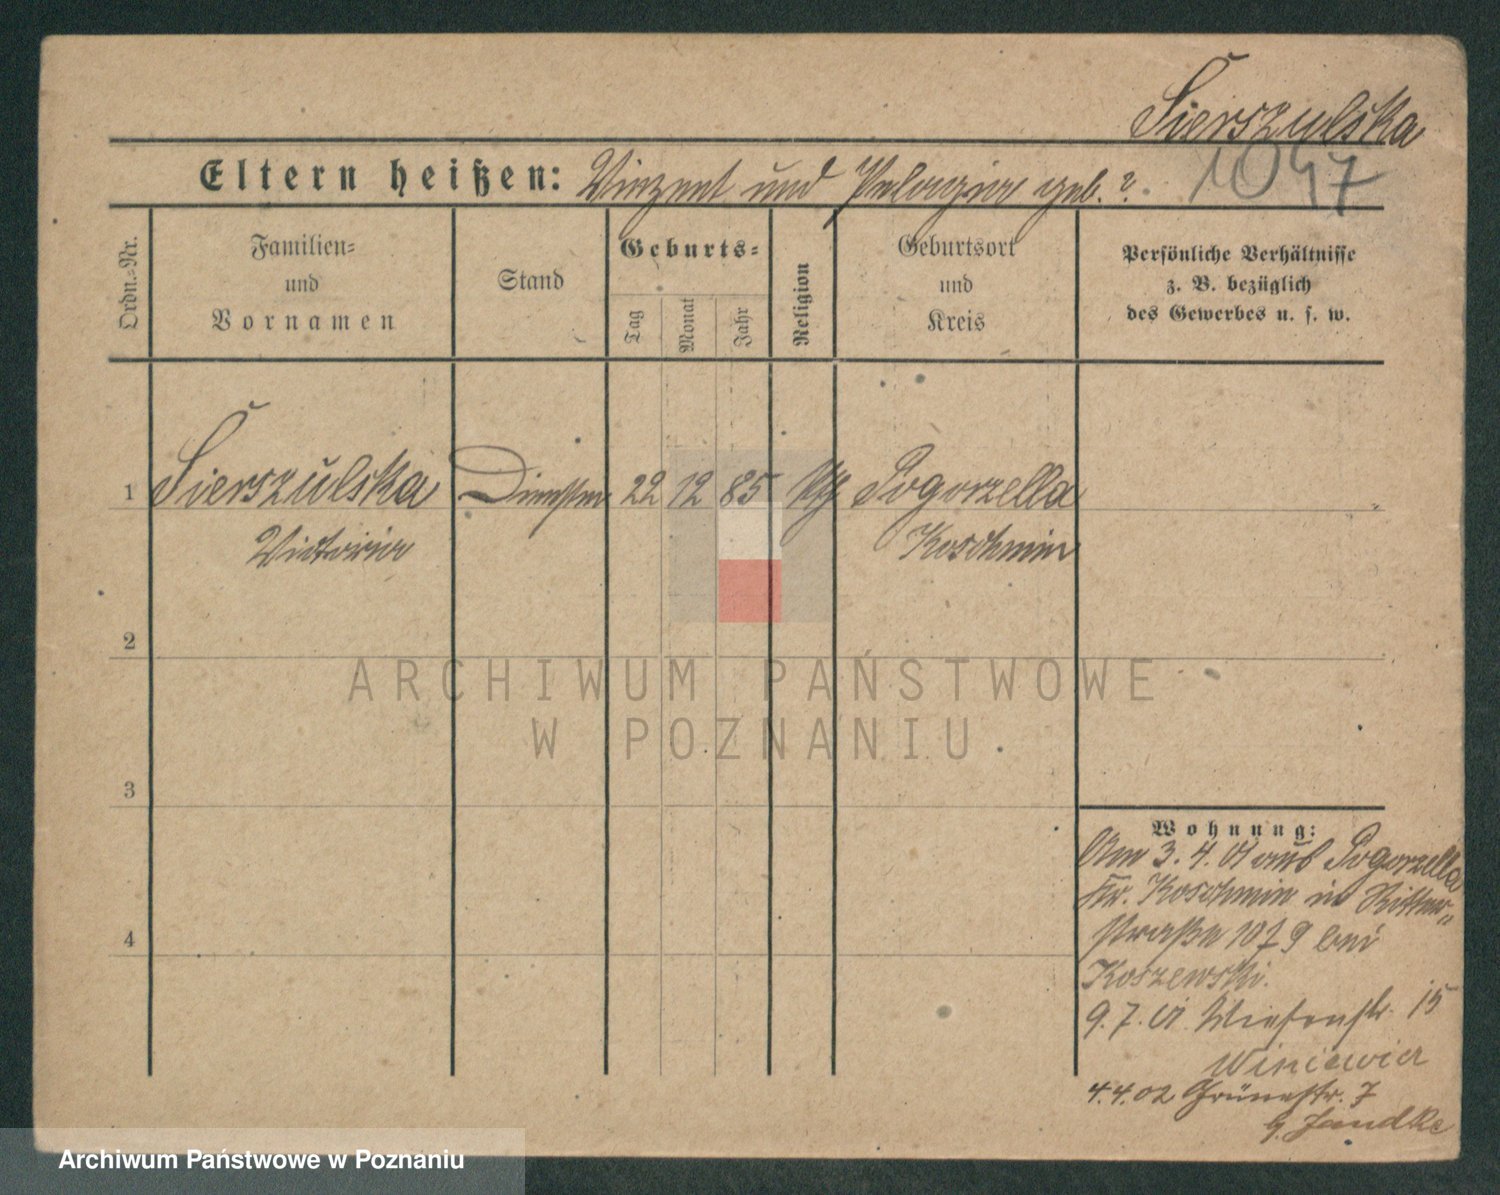 Sierszulska
Eltern heißen: Vinzent und Pelagia geb. ?
1047
Ordn.-Nr.
Familien-
und
Vornamen
Stand
Geburts-
Tag
Monat
Jahr
Religion
Geburtsort
und
Kreis
Persönliche Verhältnisse
z. B. bezüglich
des Gewerbes u. s. w.
1 Sierszulska 22 12 85 Pogorzella
Victoria Koschmin
2
3
4
Wohnung:
Am 3. 4. 01 aus Pogorzella
Kr. Koschmin in Ritter-
straße 10 bei
Koszewski.
9. 7. 01 Wiesenstr. 15
4. 4. 02 Grünestr. 7
b. Jandke
ARCHIWUM PAŃSTWOWE
W POZNANIU
Archiwum Państwowe w Poznaniu